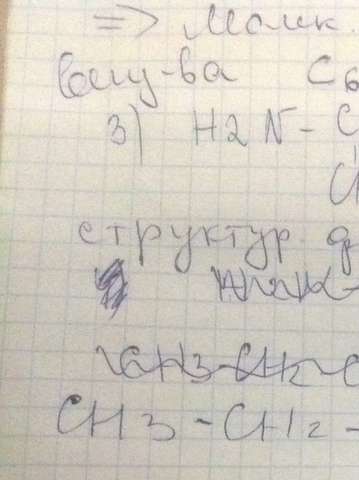 => Молек.
вещ-ва C6
3) H2N-C
структур.
CH3-CH2-C
CH3-CH2-